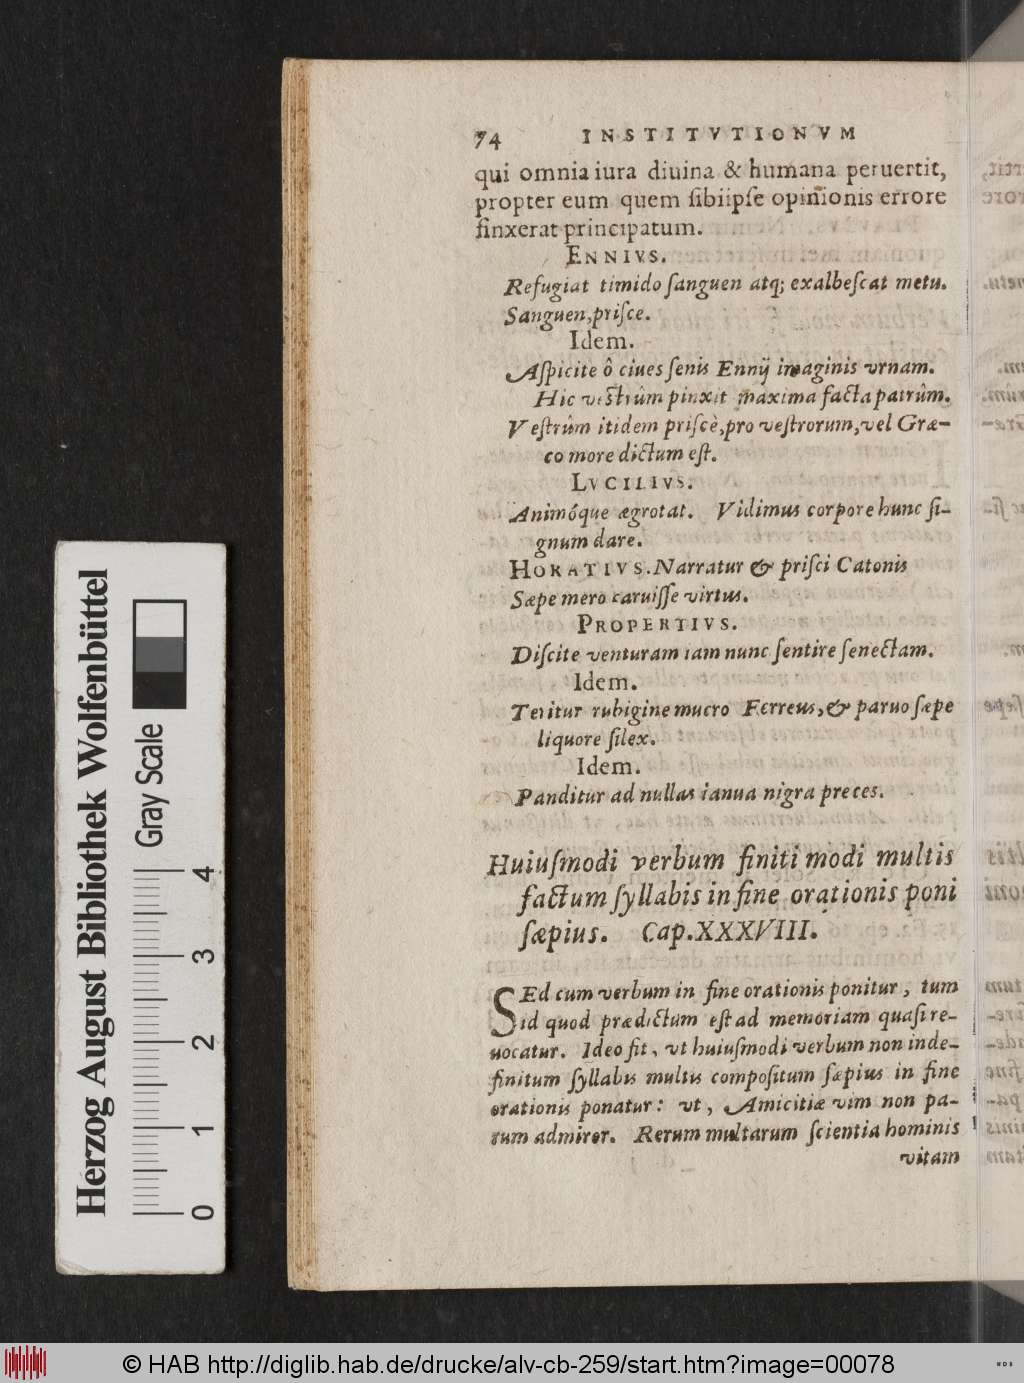 74 INSTITVTIONVM
qui omnia iura diuina & humana peruertit,
propter eum quem ſibiipſe opinionis errore
finxerat principatum.
ENNIVS.
Refugiat timido ſanguen atq; exalbeſcat metu.
Sanguen, priſce.
Idem.
Aſpicite ô ciues ſenis Ennij imaginis vrnam.
Hic veſtrûm pinxit maxima facta patrûm.
Veſtrûm itidem priſcè, pro veſtrorum, vel Græ-
co more dictum eſt.
LVCILIVS.
Animóque ægrotat. Vidimus corpore hunc ſi-
gnum dare.
HORATIVS. Narratur & priſci Catonis
Sæpe mero caruiſſe virtus.
PROPERTIVS.
Diſcite venturam iam nunc ſentire ſenectam.
Idem.
Teritur rubigine mucro Ferreus, & paruo ſæpe
liquore ſilex.
Idem.
Panditur ad nullas ianua nigra preces.
Huiuſmodi verbum finiti modi multis
factum ſyllabis in fine orationis poni
ſæpius. Cap. XXXVIII.
SEd cum verbum in fine orationis ponitur, tum
id quod prædictum eſt ad memoriam quaſi re-
uocatur. Ideo fit, vt huiuſmodi verbum non inde-
finitum ſyllabis multis compoſitum ſæpius in fine
orationis ponatur: vt, Amicitiæ vim non pa-
rum admiror. Rerum multarum ſcientia hominis
vitam
Herzog August Bibliothek Wolfenbüttel
Gray Scale
0 1 2 3 4
© HAB http://diglib.hab.de/drucke/alv-cb-259/start.htm?image=00078